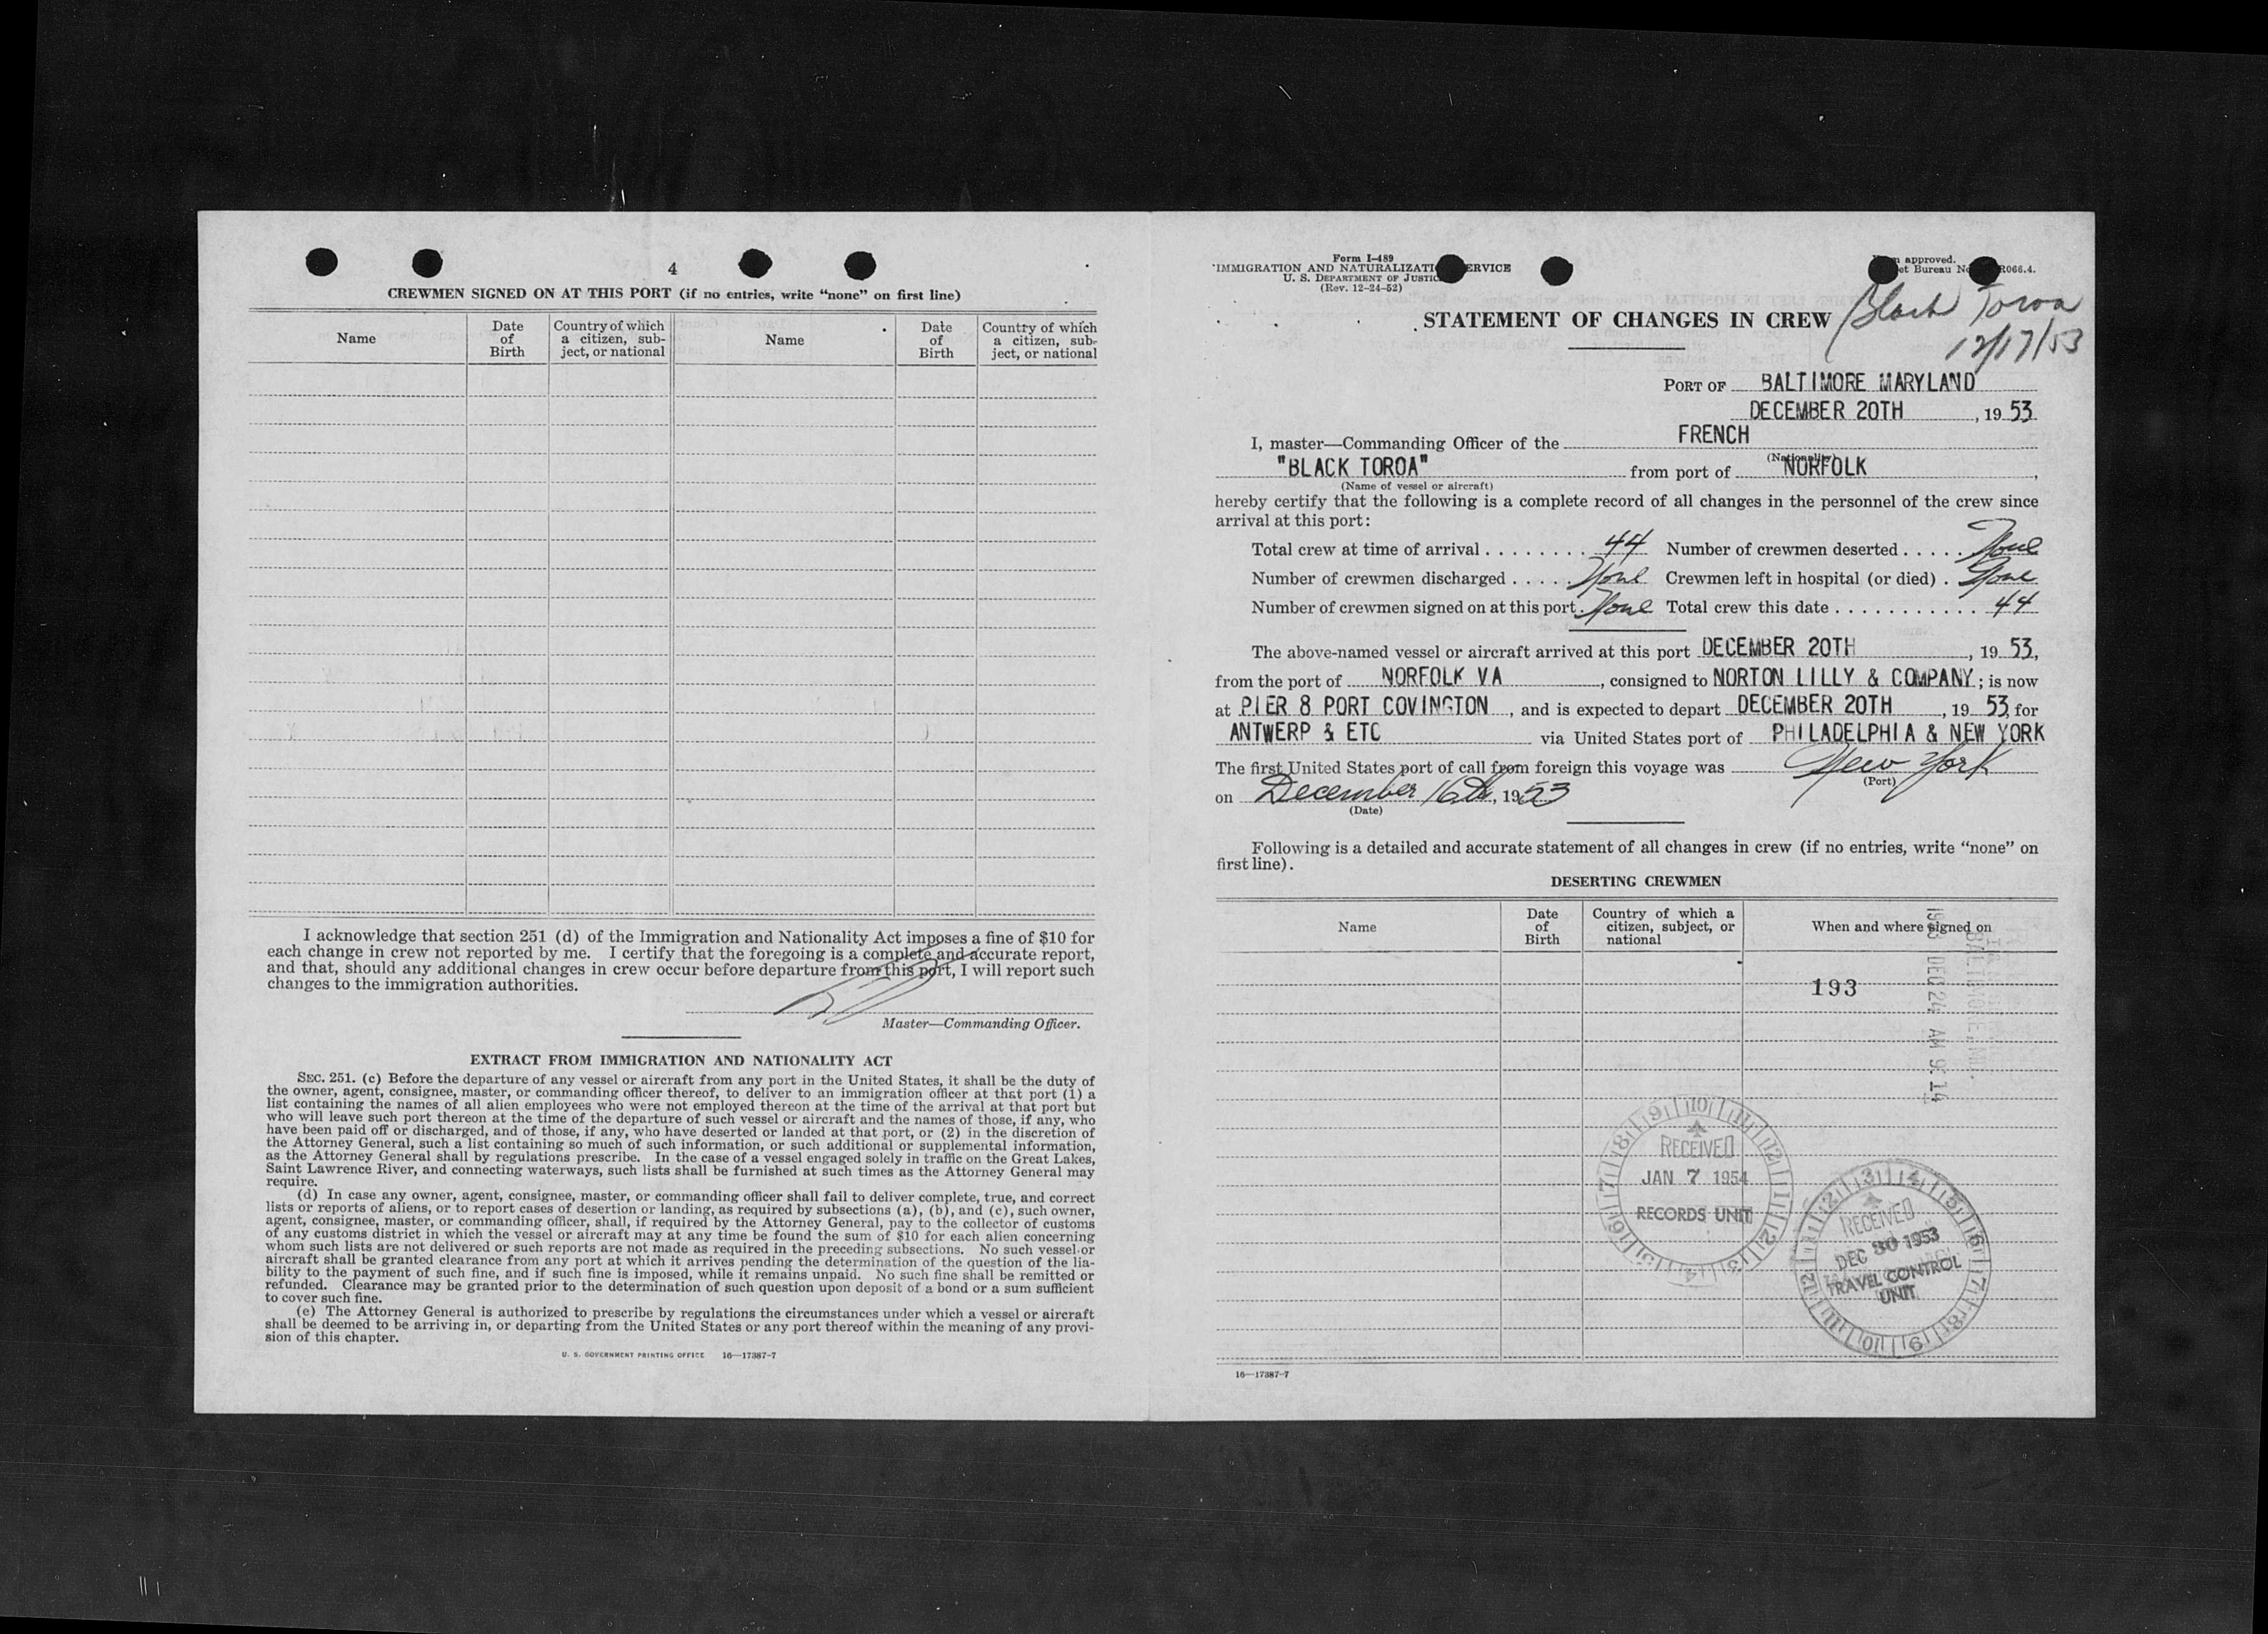 4
CREWMEN SIGNED ON AT THIS PORT (if no entries, write “none” on first line)
Name
Date of Birth
Country of which a citizen, subject, or national
Name
Date of Birth
Country of which a citizen, subject, or national
I acknowledge that section 251 (d) of the Immigration and Nationality Act imposes a fine of $10 for
each change in crew not reported by me. I certify that the foregoing is a complete and accurate report,
and that, should any additional changes in crew occur before departure from this port, I will report such
changes to the immigration authorities.
Master—Commanding Officer.
EXTRACT FROM IMMIGRATION AND NATIONALITY ACT
SEC. 251. (c) Before the departure of any vessel or aircraft from any port in the United States, it shall be the duty of
the owner, agent, consignee, master, or commanding officer thereof, to deliver to an immigration officer at that port (1) a
list containing the names of all alien employees who were not employed thereon at the time of the arrival at that port but
who will leave such port thereon at the time of the departure of such vessel or aircraft and the names of those, if any, who
have been paid off or discharged, and of those, if any, who have deserted or landed at that port, or (2) in the discretion of
the Attorney General, such a list containing so much of such information, or such additional or supplemental information,
as the Attorney General shall by regulations prescribe. In the case of a vessel engaged solely in traffic on the Great Lakes,
Saint Lawrence River, and connecting waterways, such lists shall be furnished at such times as the Attorney General may
require.
(d) In case any owner, agent, consignee, master, or commanding officer shall fail to deliver complete, true, and correct
lists or reports of aliens, or to report cases of desertion or landing, as required by subsections (a), (b), and (c), such owner,
agent, consignee, master, or commanding officer, shall, if required by the Attorney General, pay to the collector of customs
of any customs district in which the vessel or aircraft may at any time be found the sum of $10 for each alien concerning
whom such lists are not delivered or such reports are not made as required in the preceding subsections. No such vessel or
aircraft shall be granted clearance from any port at which it arrives pending the determination of the question of the lia-
bility to the payment of such fine, and if such fine is imposed, while it remains unpaid. No such fine shall be remitted or
refunded. Clearance may be granted prior to the determination of such question upon deposit of a bond or a sum sufficient
to cover such fine.
(e) The Attorney General is authorized to prescribe by regulations the circumstances under which a vessel or aircraft
shall be deemed to be arriving in, or departing from the United States or any port thereof within the meaning of any provi-
sion of this chapter.
U. S. GOVERNMENT PRINTING OFFICE 16—17387-7
Form I-489
IMMIGRATION AND NATURALIZATI ERVICE
U. S. DEPARTMENT OF JUSTIC
(Rev. 12-24-52)
approved.
et Bureau No R066.4.
Black Toroa
12/17/53
STATEMENT OF CHANGES IN CREW
PORT OF BALTIMORE MARYLAND
DECEMBER 20TH, 19 53
I, master—Commanding Officer of the FRENCH
(Nationality)
"BLACK TOROA" from port of NORFOLK,
(Name of vessel or aircraft)
hereby certify that the following is a complete record of all changes in the personnel of the crew since
arrival at this port:
Total crew at time of arrival . . . . . . . . 44 Number of crewmen deserted . . . . . None
Number of crewmen discharged . . . . . None Crewmen left in hospital (or died) . None
Number of crewmen signed on at this port. None Total crew this date . . . . . . . . . . . 44
The above-named vessel or aircraft arrived at this port DECEMBER 20TH, 19 53,
from the port of NORFOLK VA, consigned to NORTON LILLY & COMPANY; is now
at PIER 8 PORT COVINGTON, and is expected to depart DECEMBER 20TH, 19 53, for
ANTWERP & ETC via United States port of PHILADELPHIA & NEW YORK
The first United States port of call from foreign this voyage was New York
(Port)
on December 16th, 1953
(Date)
Following is a detailed and accurate statement of all changes in crew (if no entries, write “none” on
first line).
DESERTING CREWMEN
Name
Date of Birth
Country of which a citizen, subject, or national
When and where signed on
193
1953 DEC 24 AM 9:14
BALTIMORE, MD.
RECEIVED
JAN 7 1954
RECORDS UNIT
RECEIVED
DEC 30 1953
TRAVEL CONTROL
UNIT
16—17387-7